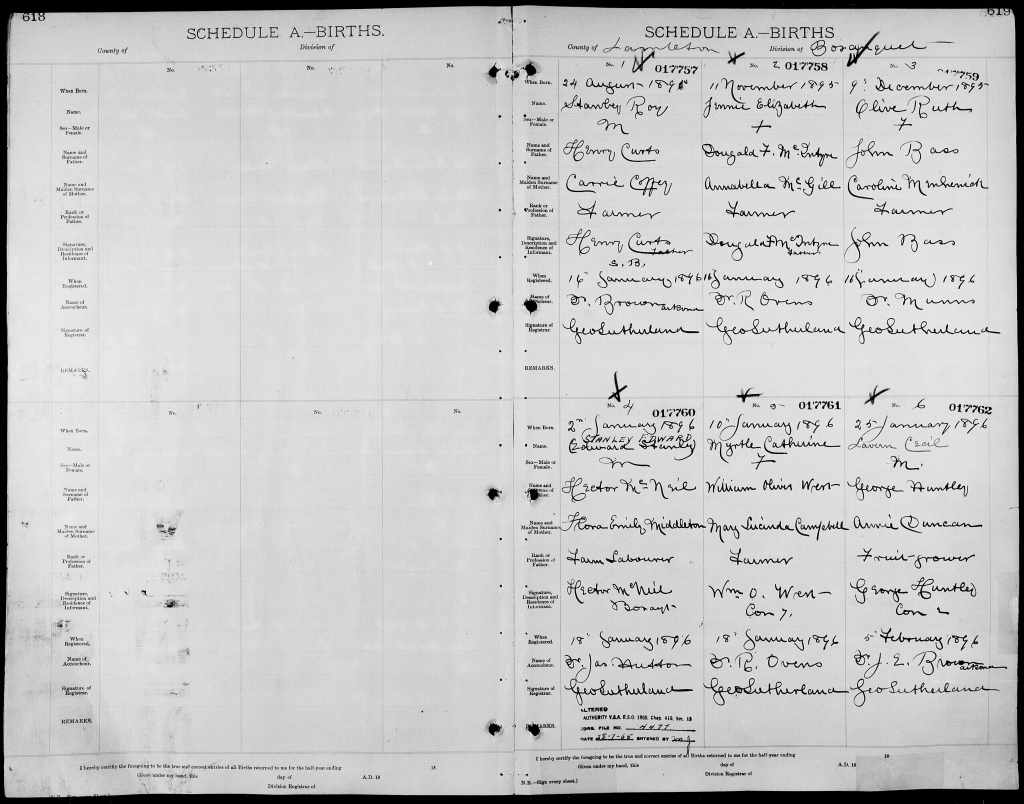 618
SCHEDULE A.—BIRTHS.
County of
Division of
No. No. No.
When Born.
Name.
Sex—Male or Female.
Name and Surname of Father.
Name and Maiden Surname of Mother.
Rank or Profession of Father.
Signature, Description and Residence of Informant.
When Registered.
Name of Accoucheur.
Signature of Registrar.
REMARKS.
No. No. No.
When Born.
Name.
Sex—Male or Female.
Name and Surname of Father.
Name and Maiden Surname of Mother.
Rank or Profession of Father.
Signature, Description and Residence of Informant.
When Registered.
Name of Accoucheur.
Signature of Registrar.
REMARKS.
I hereby certify the foregoing to be the true and correct entries of all Births returned to me for the half-year ending 18
Given under my hand, this day of A.D. 18
Division Registrar of
619
SCHEDULE A.—BIRTHS
County of Lambton Division of Bosanquet
No. 1 017757 No. 2 017758 No. 3 759
When Born. 24 August 189 11 November 1895 9 December 1895
Name. Stanley Roy Jennie Elizabeth Olive Ruth
Sex—Male or Female. M F
Name and Surname of Father. Henry Curts Dougald F. McIntyre John Bass
Name and Maiden Surname of Mother. Carrie Coffey Annabella McGill Caroline
Rank or Profession of Father. Farmer Farmer Farmer
Signature, Description and Residence of Informant. Henry Curts Father Dougald F McIntyre Father John Bass
S. B.
When Registered. 16 January 1896 16 January 1896 16 January 1896
Name of Accoucheur. Dr. Brown Dr. R Ovens Dr. Munns
Signature of Registrar. Geo Sutherland Geo Sutherland Geo Sutherland
REMARKS.
No. 4 017760 No. 5 017761 No. 6 017762
When Born. 2nd January 1896 10 January 1896 25 January 1896
STANLEY EDWARD
Name. (Edward Stanley) Myrtle Catharine Lavern Cecil
Sex—Male or Female. M F M.
Name and Surname of Father. Hector McNeil William Oliver West George Huntley
Name and Maiden Surname of Mother. Flora Emily Middleton Mary Lucinda Campbell Annie Duncan
Rank or Profession of Father. Farm Labourer Farmer Fruit grower
Signature, Description and Residence of Informant. Hector McNeil Wm O. West George Huntley
Bosanqt Con 7, Con 2
When Registered. 18 January 1896 18 January 1896 5 February 1896
Name of Accoucheur. Dr. Jas Hutton Dr. R. Ovens Dr. J. E. Brown
Signature of Registrar. Geo Sutherland Geo Sutherland Geo Sutherland
REMARKS.
ALTERED
AUTHORITY V.S.A. R.S.O. 1960, Chap. 419, Sec. 13
FILE NO.
DATE ENTERED BY
I hereby certify the foregoing to be the true and correct entries of all Births returned to me for the half-year ending 18
Given under my hand, this day of A.D. 18
Division Registrar of
N.B.—Sign every sheet.]